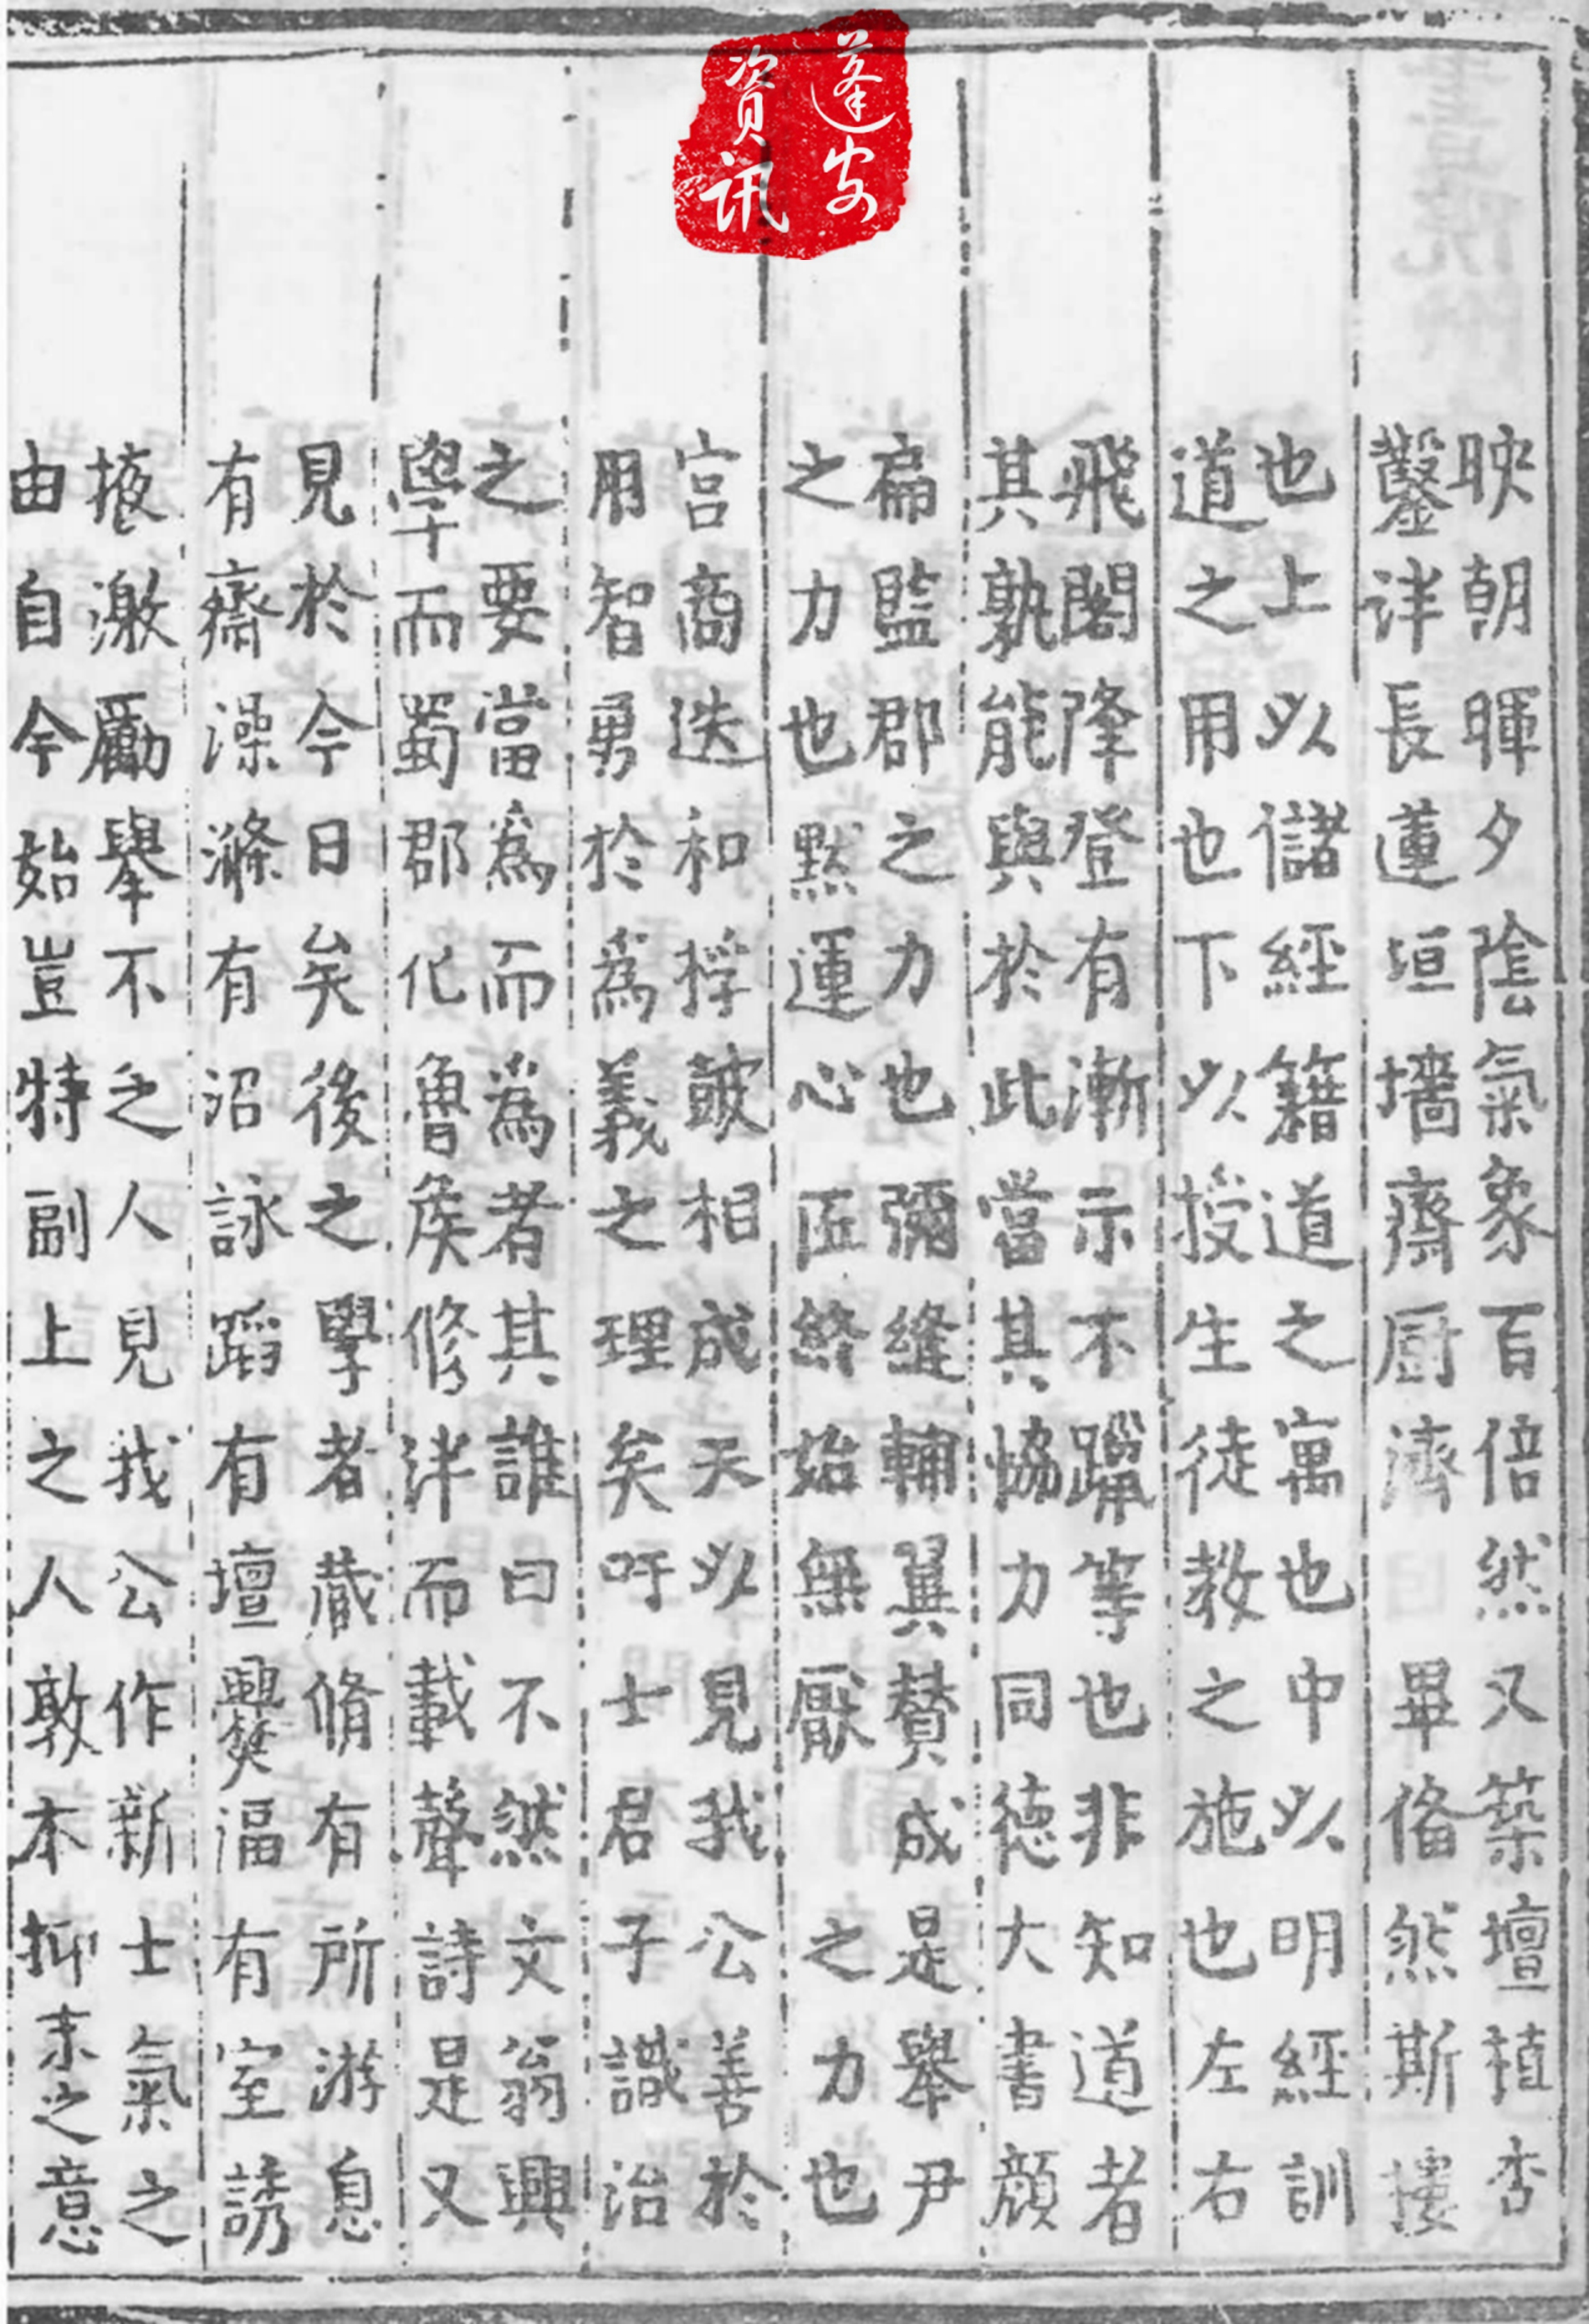 蓬安
資訊
映朝暉夕陰氣象百倍然又築壇植杏
鑿泮長蓮垣墻齋厨濟畢俻然斯摟
也上以儲經籍道之寓也中以明經訓
道之用也下以授生徒教之施也左右
飛閣降登有漸示不躐等也非知道者
其孰能與於此當其恊力同德大書顔
扁監郡之力也彌縫輔翼賛成是舉尹
之力也默運心匠終始無厭之力也
宫商迭和桴皷相成天以見我公善於
用智勇於為義之理矣吁士君子識治
之要當為而為者其誰曰不然文翁興
學而蜀郡化魯矦修泮而載聲詩是又
見於今日矣後之學者蔵脩有所游息
有齋澡滌有沼詠蹈有壇興焚湢有室誘
掖激勵舉不乏人見我公作新士氣之
由自今始豈特副上之人敦本抑末之意